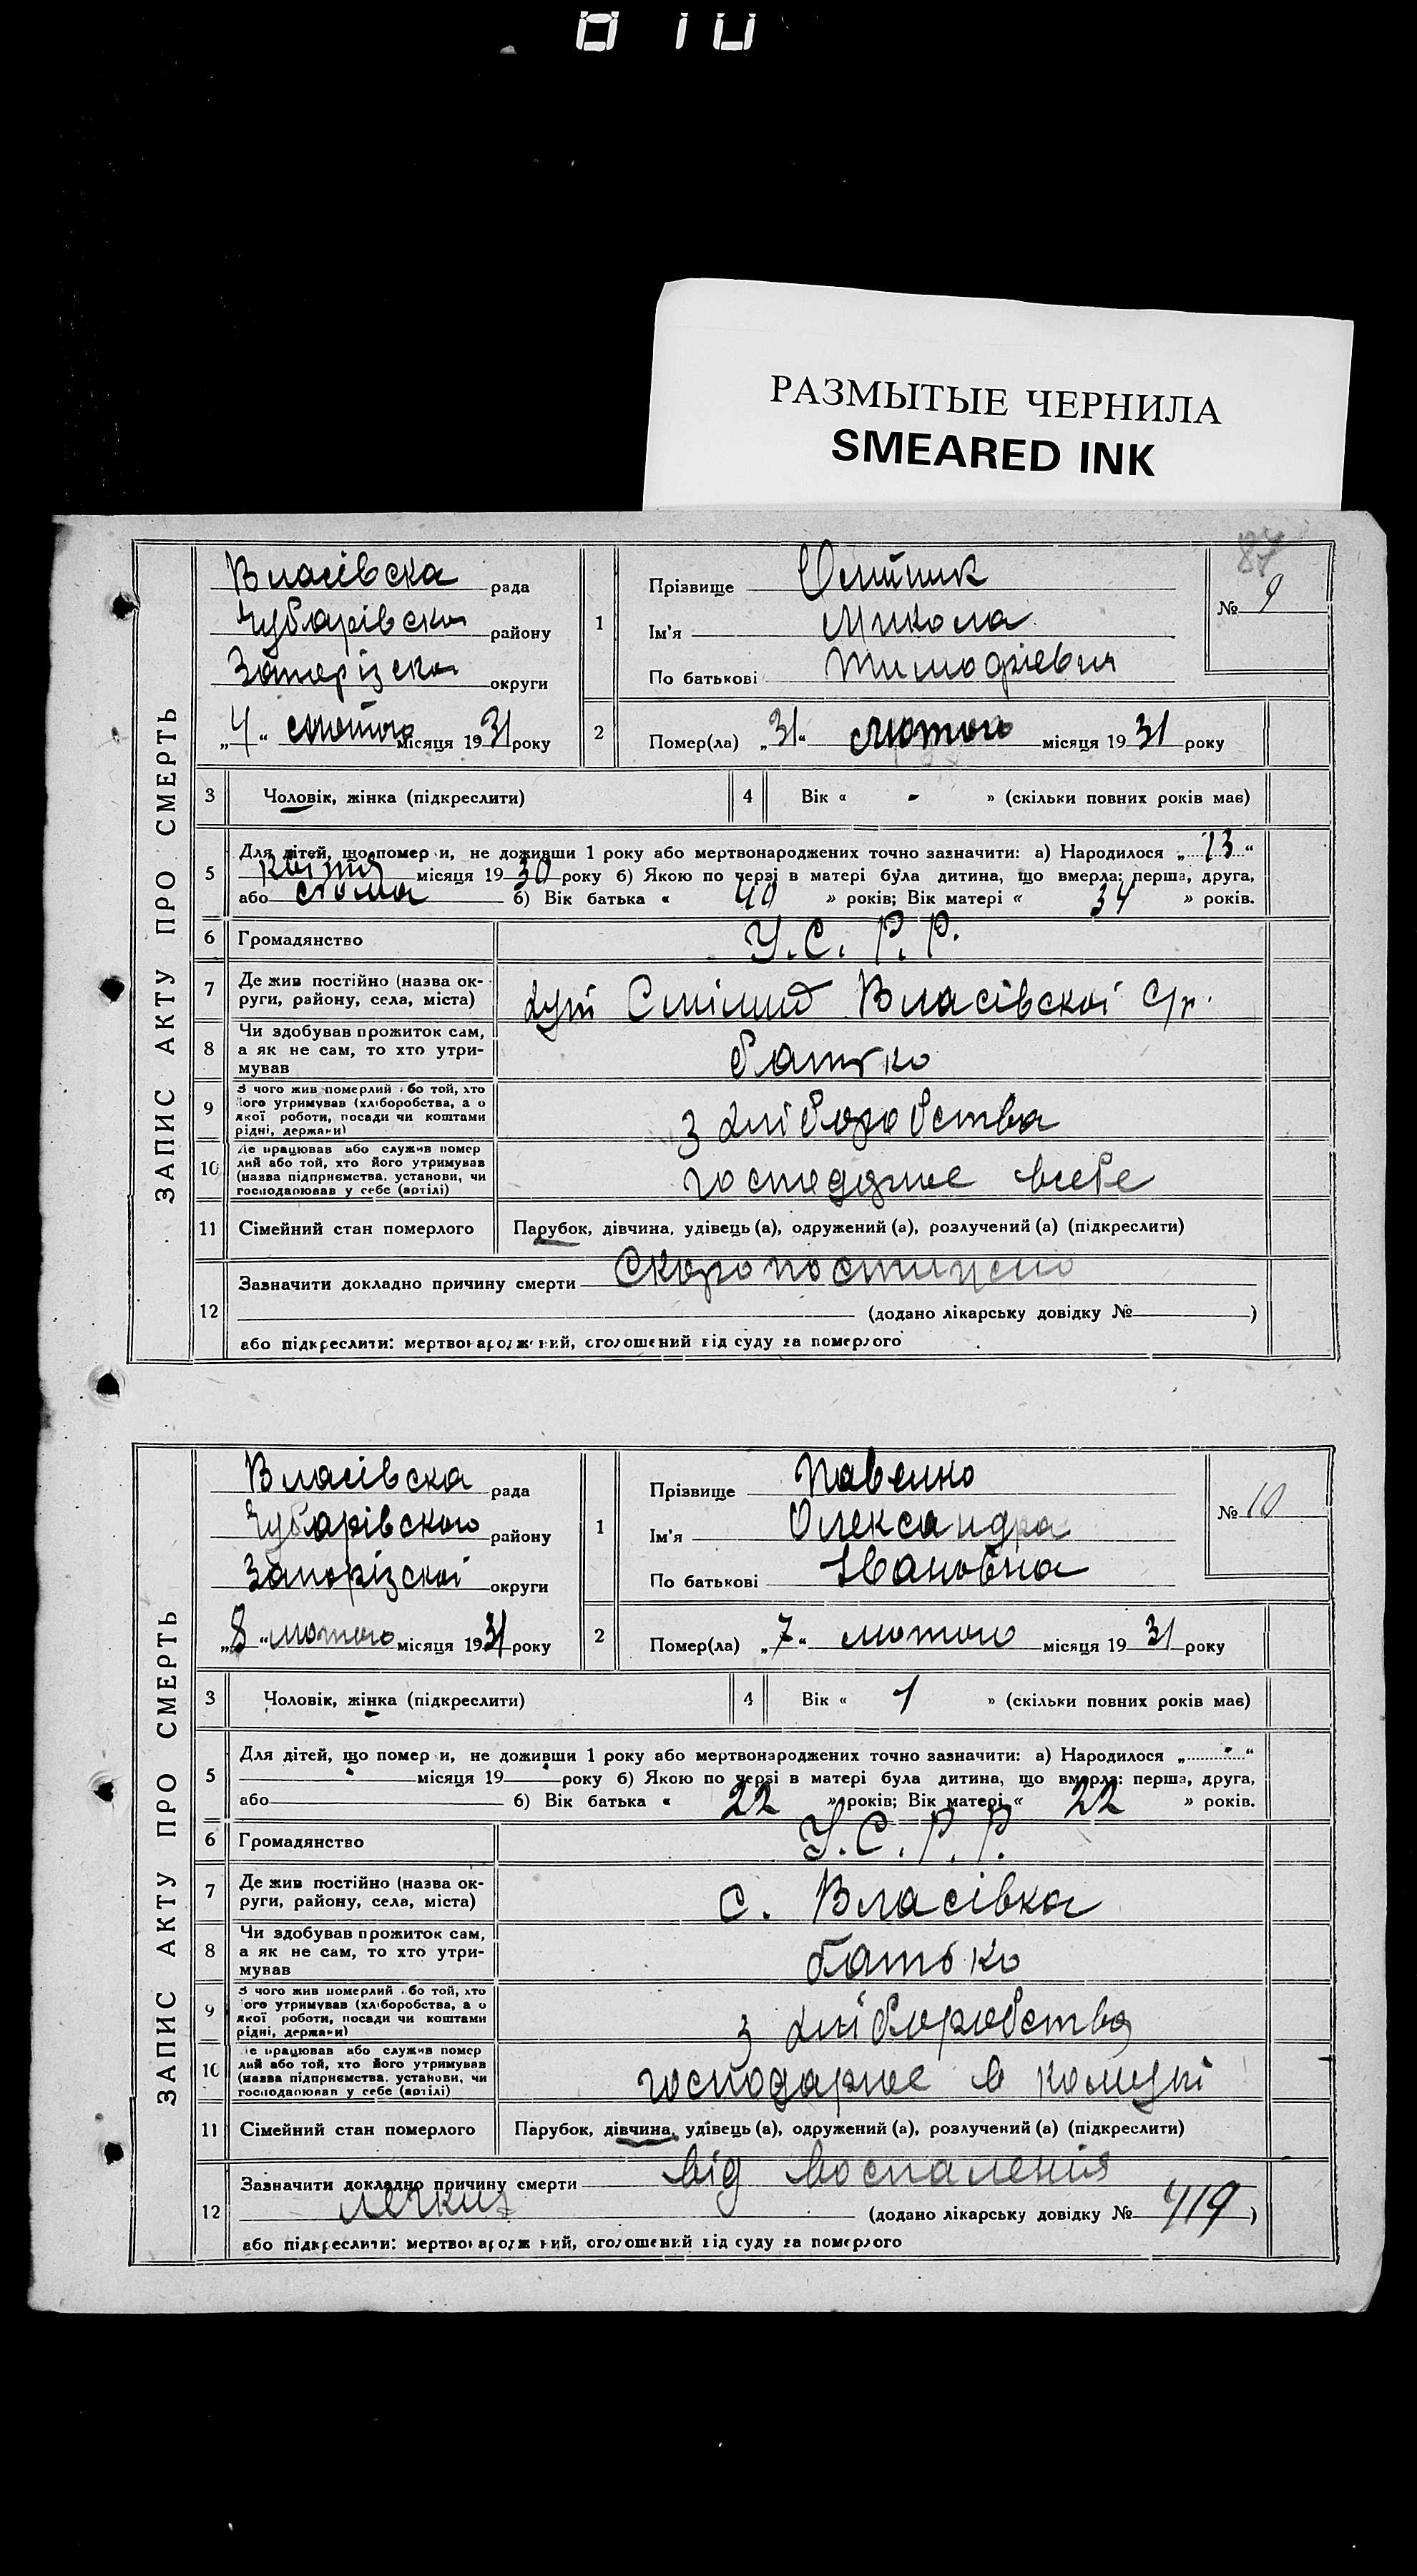 РАЗМЫТЫЕ ЧЕРНИЛА
SMEARED INK
87
ЗАПИС АКТУ ПРО СМЕРТЬ
Власівска рада
Чубарівска району
округи
„4“ лютого місяця 1931 року
1
Прізвище Олійник
Ім'я Микола
По батькові
№ 9
2
Помер(ла) „31“ лютого місяця 1931 року
3 Чоловік, жінка (підкреслити)
4 Вік « - » (скільки повних років має)
5 Для дітей, що померли, не доживши 1 року або мертвонароджених точно зазначити: а) Народилося „13“
квітня місяця 1930 року б) Якою по черзі в матері була дитина, що вмерла: перша, друга,
або сьома б) Вік батька « 40 » років; Вік матері « 34 » років.
6 Громадянство У.С.Р.Р.
7 Де жив постійно (назва округи, району, села, міста) Власівскої с/р.
8 Чи здобував прожиток сам, а як не сам, то хто утримував батько
9 З чого жив померлий або той, хто його утримував (хліборобства, або якої роботи, посади чи коштами рідні, держави) з хліборобства
10 Де працював або служив померлий або той, хто його утримував (назва підприємства, установи, чи господарював у себе (артілі)
11 Сімейний стан померлого Парубок, дівчина, удівець (а), одружений (а), розлучений (а) (підкреслити)
12 Зазначити докладно причину смерти
(додано лікарську довідку № )
або підкреслити: мертвонароджений, оголошений від суду за померлого
ЗАПИС АКТУ ПРО СМЕРТЬ
Власівска рада
Чубарівского району
Запорізскої округи
„8“ лютого місяця 1931 року
1
Прізвище Павенко
Ім'я Олександра
По батькові Івановна
№ 10
2
Помер(ла) „7“ лютого місяця 1931 року
3 Чоловік, жінка (підкреслити)
4 Вік « 1 » (скільки повних років має)
5 Для дітей, що померли, не доживши 1 року або мертвонароджених точно зазначити: а) Народилося „ “
місяця 19 року б) Якою по черзі в матері була дитина, що вмерла: перша, друга,
або б) Вік батька « 22 » років; Вік матері « 22 » років.
6 Громадянство У.С.Р.Р.
7 Де жив постійно (назва округи, району, села, міста) с. Власівка
8 Чи здобував прожиток сам, а як не сам, то хто утримував батько
9 З чого жив померлий або той, хто його утримував (хліборобства, або якої роботи, посади чи коштами рідні, держави) з хліборобства
10 Де працював або служив померлий або той, хто його утримував (назва підприємства, установи, чи господарював у себе (артілі) господарює в комуні
11 Сімейний стан померлого Парубок, дівчина, удівець (а), одружений (а), розлучений (а) (підкреслити)
12 Зазначити докладно причину смерти від воспаленія
легких (додано лікарську довідку № 419)
або підкреслити: мертвонароджений, оголошений від суду за померлого